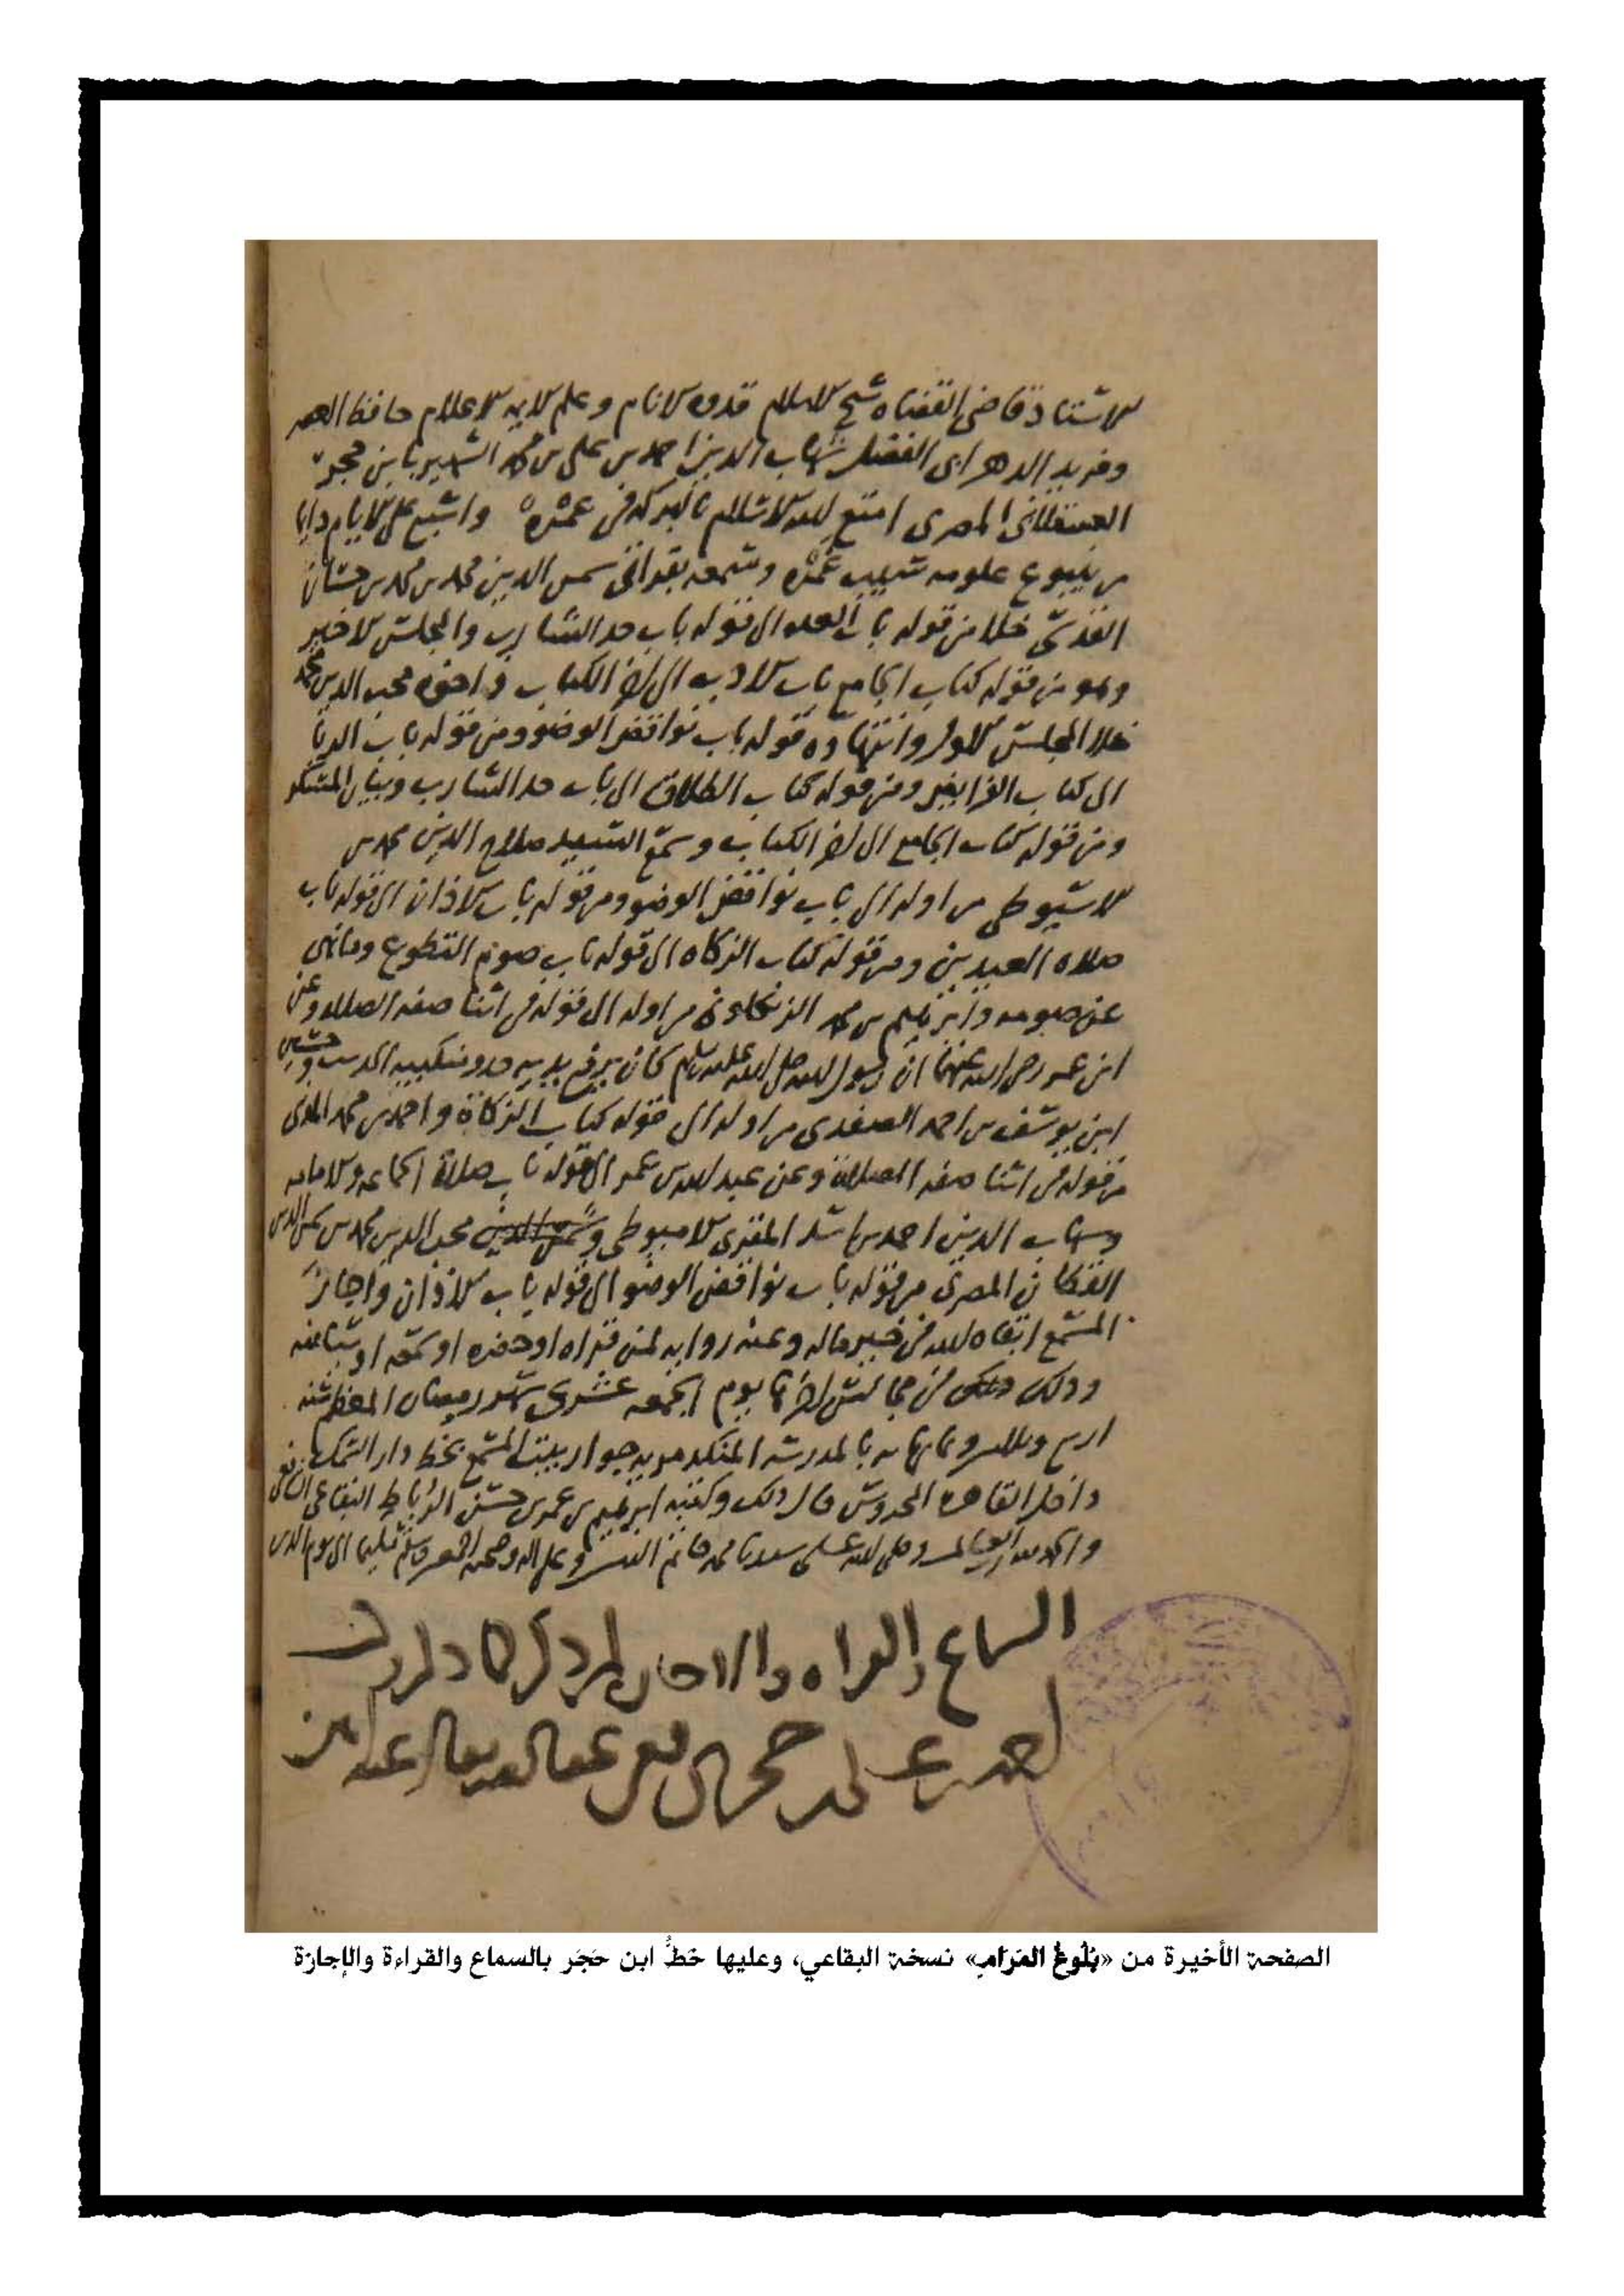 الاستاذ قاضي القضاه شيخ الاسلام قدوه الانام وعلم الايمه الاعلام حافظ العصر
وفريد الدهر ابي الفضل شهاب الدين احمد بن علي بن محمد الشهير بابن حجر
العسقلاني المصري امتع الله الاسلام بالبركه في عمره واسبغ على الايام دايما
من ينبوع علومه وسمعه بقراتي شمس الدين محمد بن محمد بن حسان
القدسي خلا من قوله باب الى قوله باب حد الشارب والمجلس الاخير
وهو من قوله كتاب الجامع باب الادب الى اخر الكتاب واخوه محب الدين محمد
خلا المجلس الاول وانتهاوه قوله باب نواقض الوضو ومن قوله باب الربا
الى كتاب الفرايض ومن قوله كتاب الطلاق الى باب حد الشارب وبيان المسكر
ومن قوله كتاب الجامع الى اخر الكتاب وسمع السيد صلاح الدين محمد بن
الاسيوطي من اوله الى باب نواقض الوضو ومن قوله باب الاذان الى قوله باب
صلاه العيدين ومن قوله كتاب الزكاه الى قوله باب صوم التطوع وما نهي
عن صومه وابرهيم بن محمد من اوله الى قوله في اثنا صفه الصلاه وعن
ابن عمر رضي الله عنهما ان رسول الله صلى الله عليه وسلم كان يرفع يديه حذو منكبيه الحديث
ابن يوسف بن احمد الصفدي من اوله الى قوله كتاب الزكاة واحمد بن محمد
من قوله في اثنا صفه الصلاة وعن عبد الله بن عمر الى قوله باب صلاة الجماعه والامامه
وشهاب الدين احمد بن اسد المقري الاميوطي ومحب الدين محمد بن شمس الدين
المصري من قوله باب نواقض الوضو الى قوله باب الاذان واجاز
المسمع ابقاه الله في خير ماله وعنه روايه لمن قراه او حضره او سمعه او شيا منه
وذلك في مجالس اخرها يوم الجمعه عشري شهر رمضان المعظم سنه
اربع وثلاثين وثمانمايه بالمدرسه المنكدمريه جوار بيت المسمع بخط دار
داخل القاهره المحروسه قال ذلك وكتبه ابرهيم بن عمر بن حسن الرباط البقاعي الشافعي
والحمد لله رب العالمين وصلى الله على سيدنا محمد خاتم النبيين وعلى اله وصحبه اجمعين وسلم تسليما الى يوم الدين
السماع والقراه والاجازه
احمد بن علي بن حجر الشافعي عفا الله تعالى عنه امين
الصفحة الأخيرة من «بُلُوغُ المَرَامِ» نسخة البقاعي، وعليها خطُّ ابن حَجَر بالسماع والقراءة والإجازة